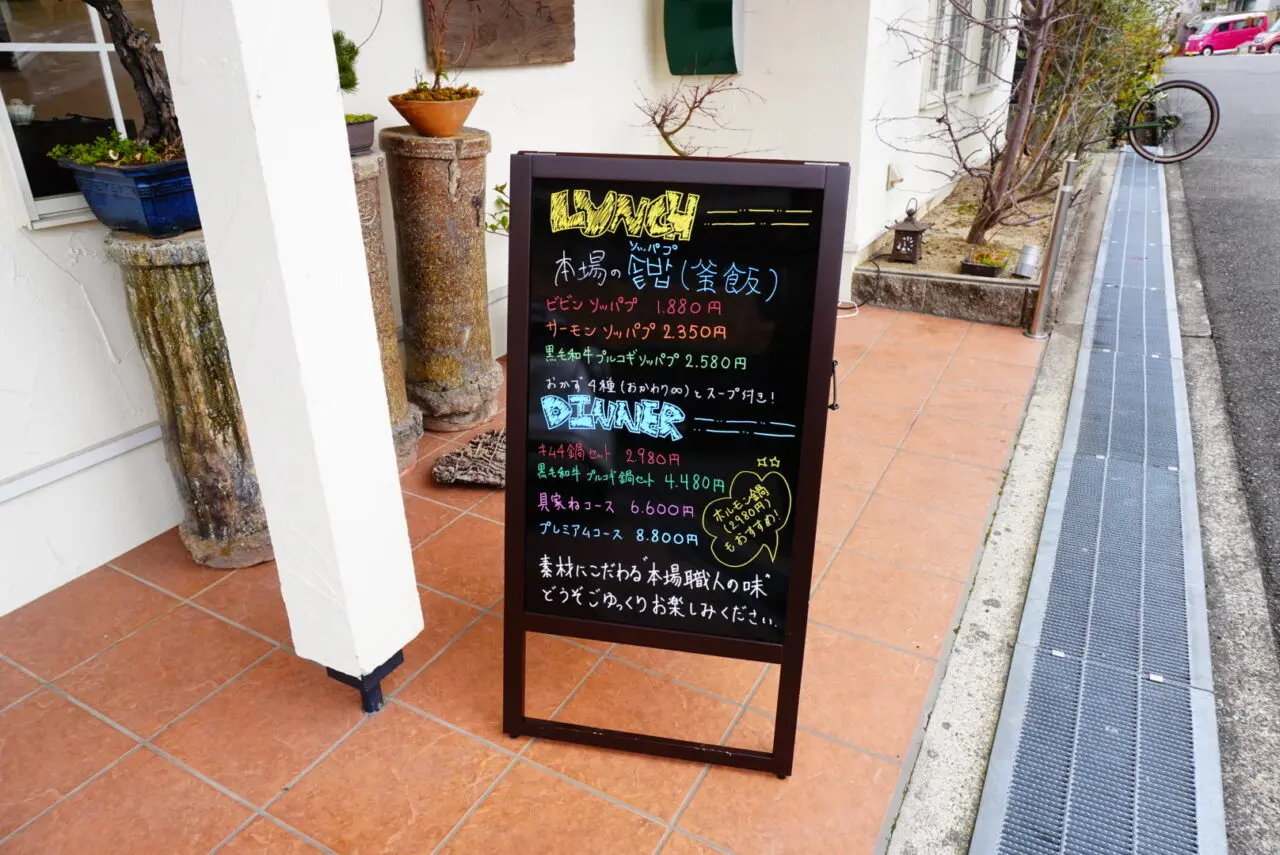 LUNCH
ソッパプ
本場の솥밥(釜飯)
ビビン ソッパプ 1.880円
サーモン ソッパプ 2.350円
黒毛和牛プルコギソッパプ 2.580円
おかず4種(おかわり∞)とスープ付き!
DINNER
キムチ鍋セット 2.980円
黒毛和牛 プルコギ鍋セット 4.480円
具家ねコース 6.600円
プレミアムコース 8.800円
ホルモン鍋
(2.980円)
もおすすめ!
素材にこだわる"本場職人の味"
どうぞごゆっくりお楽しみください.